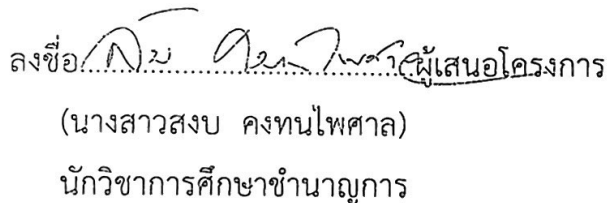 ลงชื่อ........................................ผู้เสนอโครงการ
(นางสาวสงบ คงทนไพศาล)
นักวิชาการศึกษาชำนาญการ